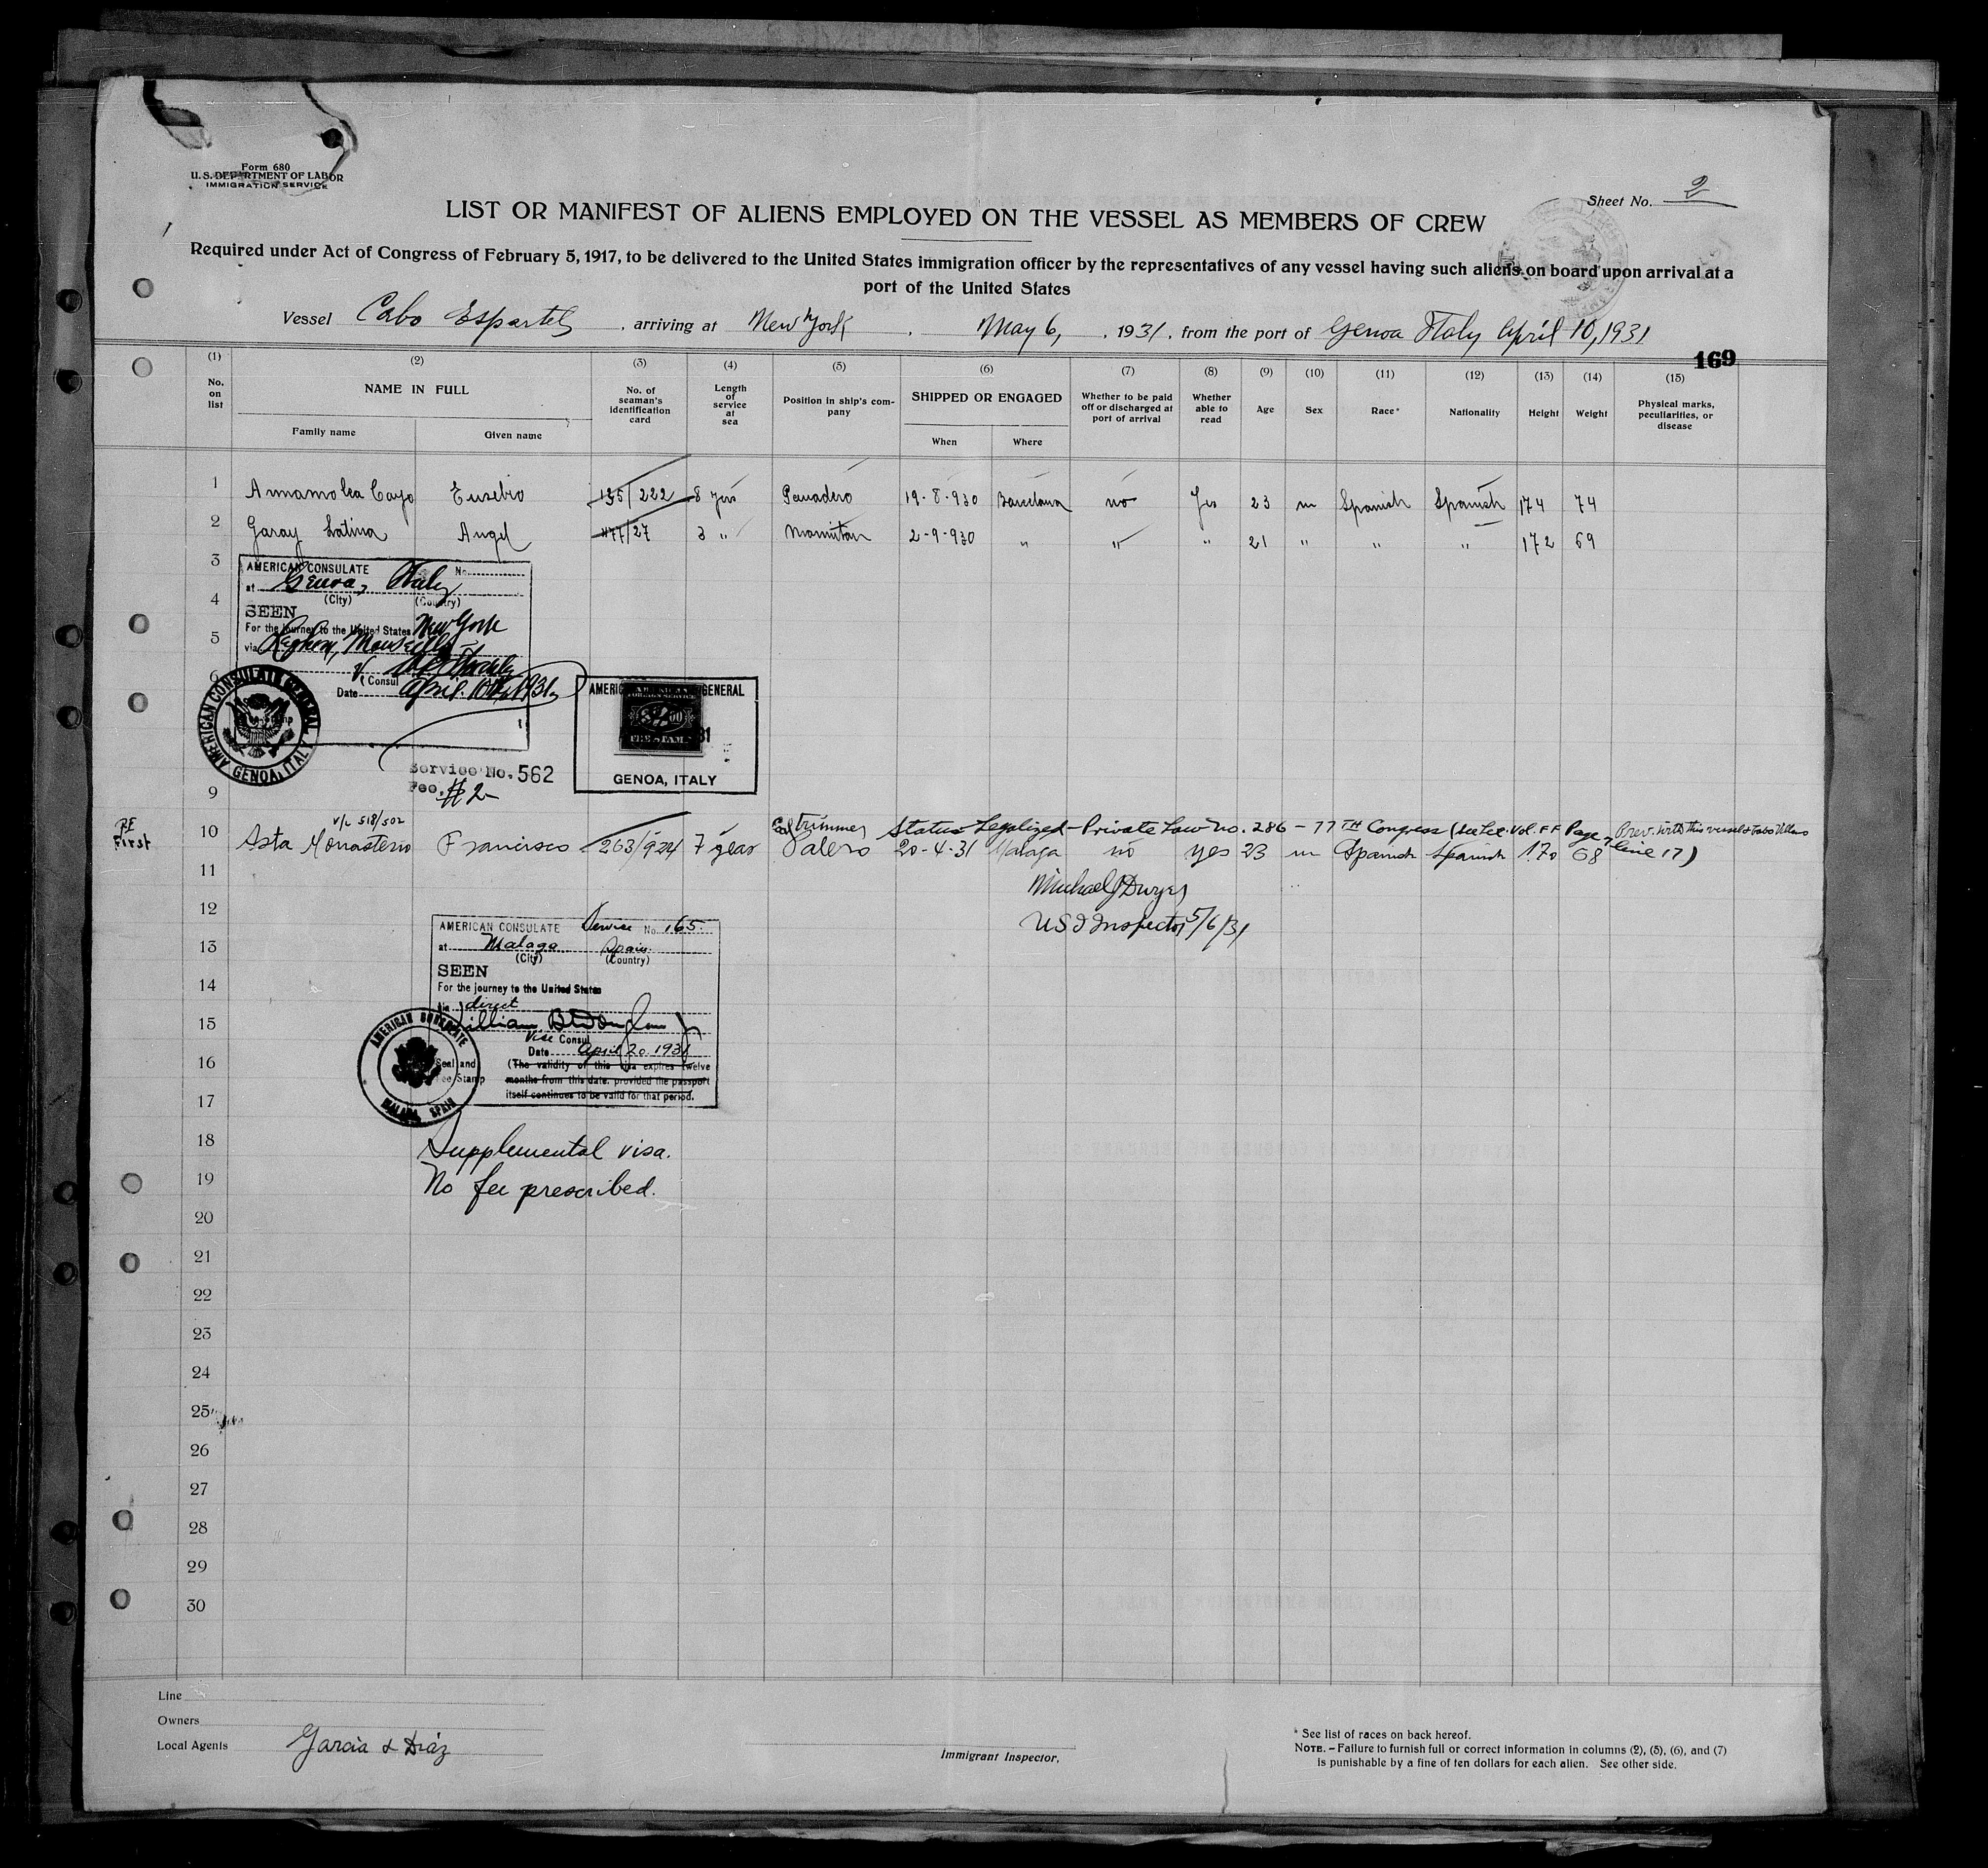 Form 680
U. S. DEPARTMENT OF LABOR
IMMIGRATION SERVICE
Sheet No. 2
LIST OR MANIFEST OF ALIENS EMPLOYED ON THE VESSEL AS MEMBERS OF CREW
Required under Act of Congress of February 5, 1917, to be delivered to the United States immigration officer by the representatives of any vessel having such aliens on board upon arrival at a
port of the United States
Vessel Cabo Espartel, arriving at New York, May 6, 1931, from the port of Genoa Italy April 10, 1931
169
(1) (2) (3) (4) (5) (6) (7) (8) (9) (10) (11) (12) (13) (14) (15)
No. on list
NAME IN FULL
Family name Given name
No. of seaman's identification card
Length of service at sea
Position in ship's company
SHIPPED OR ENGAGED
When Where
Whether to be paid off or discharged at port of arrival
Whether able to read
Age
Sex
Race*
Nationality
Height
Weight
Physical marks, peculiarities, or disease
1 Eusebio 195/222 8 yrs Panadero 19-8-930 Barcelona no Yes 23 m Spanish Spanish 174 74
2 Garay Latina Angel 477/27 3 " Marmiton 2-9-930 " " " 21 " " " 172 69
3
4
5
6
AMERICAN CONSULATE No.
at Genoa, Italy
(City) (Country)
SEEN
For the journey to the United States New York
via Leghorn, Marseille
Consul
Date April 10th, 1931
AMERICAN CONSULATE GENERAL
GENOA, ITALY
AMERICAN GENERAL
FEE STAMP
GENOA, ITALY
Service No. 562
Fee. $2-
9
RE
First
v/c 518/502
Coal Trimmer Status Legalized - Private Law No. 286 - 77TH Congress (See Lee. Vol. FF Page 7 line 17)
Prev. with this vessel & Cabo Villano
10 Asta Monasterio Francisco 263/924 7 year Palero 20-4-31 Malaga no yes 23 m Spanish Spanish 1.70 68
11
Michael J Dwyer
12
US I Inspector 5/6/31
13
14
15
16
17
AMERICAN CONSULATE Service No. 165.
at Malaga Spain.
(City) (Country)
SEEN
For the journey to the United States
via direct
Vice Consul
Date April 20 1931
Seal and
Fee Stamp
(The validity of this visa expires twelve
months from this date, provided the passport
itself continues to be valid for that period.
AMERICAN CONSULATE
MALAGA, SPAIN
18 Supplemental visa.
19 No fee prescribed.
20
21
22
23
24
25
26
27
28
29
30
Line
Owners
Local Agents Garcia & Diaz
Immigrant Inspector.
* See list of races on back hereof.
NOTE.—Failure to furnish full or correct information in columns (2), (5), (6), and (7)
is punishable by a fine of ten dollars for each alien. See other side.